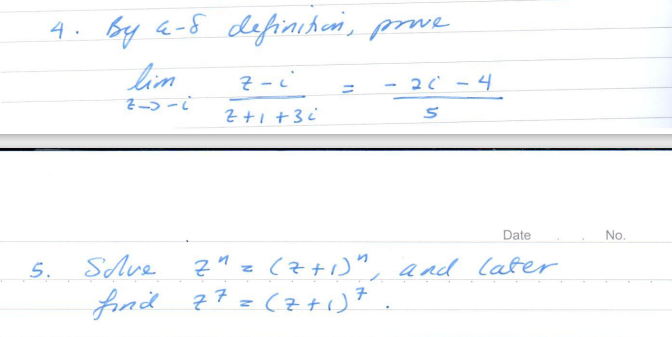 4. By ε-δ definition, prove
lim z→-i (z-i)/(z+1+3i) = (-2i-4)/5
Date . . No.
5. Solve zⁿ = (z+1)ⁿ, and later
find z⁷ = (z+1)⁷.